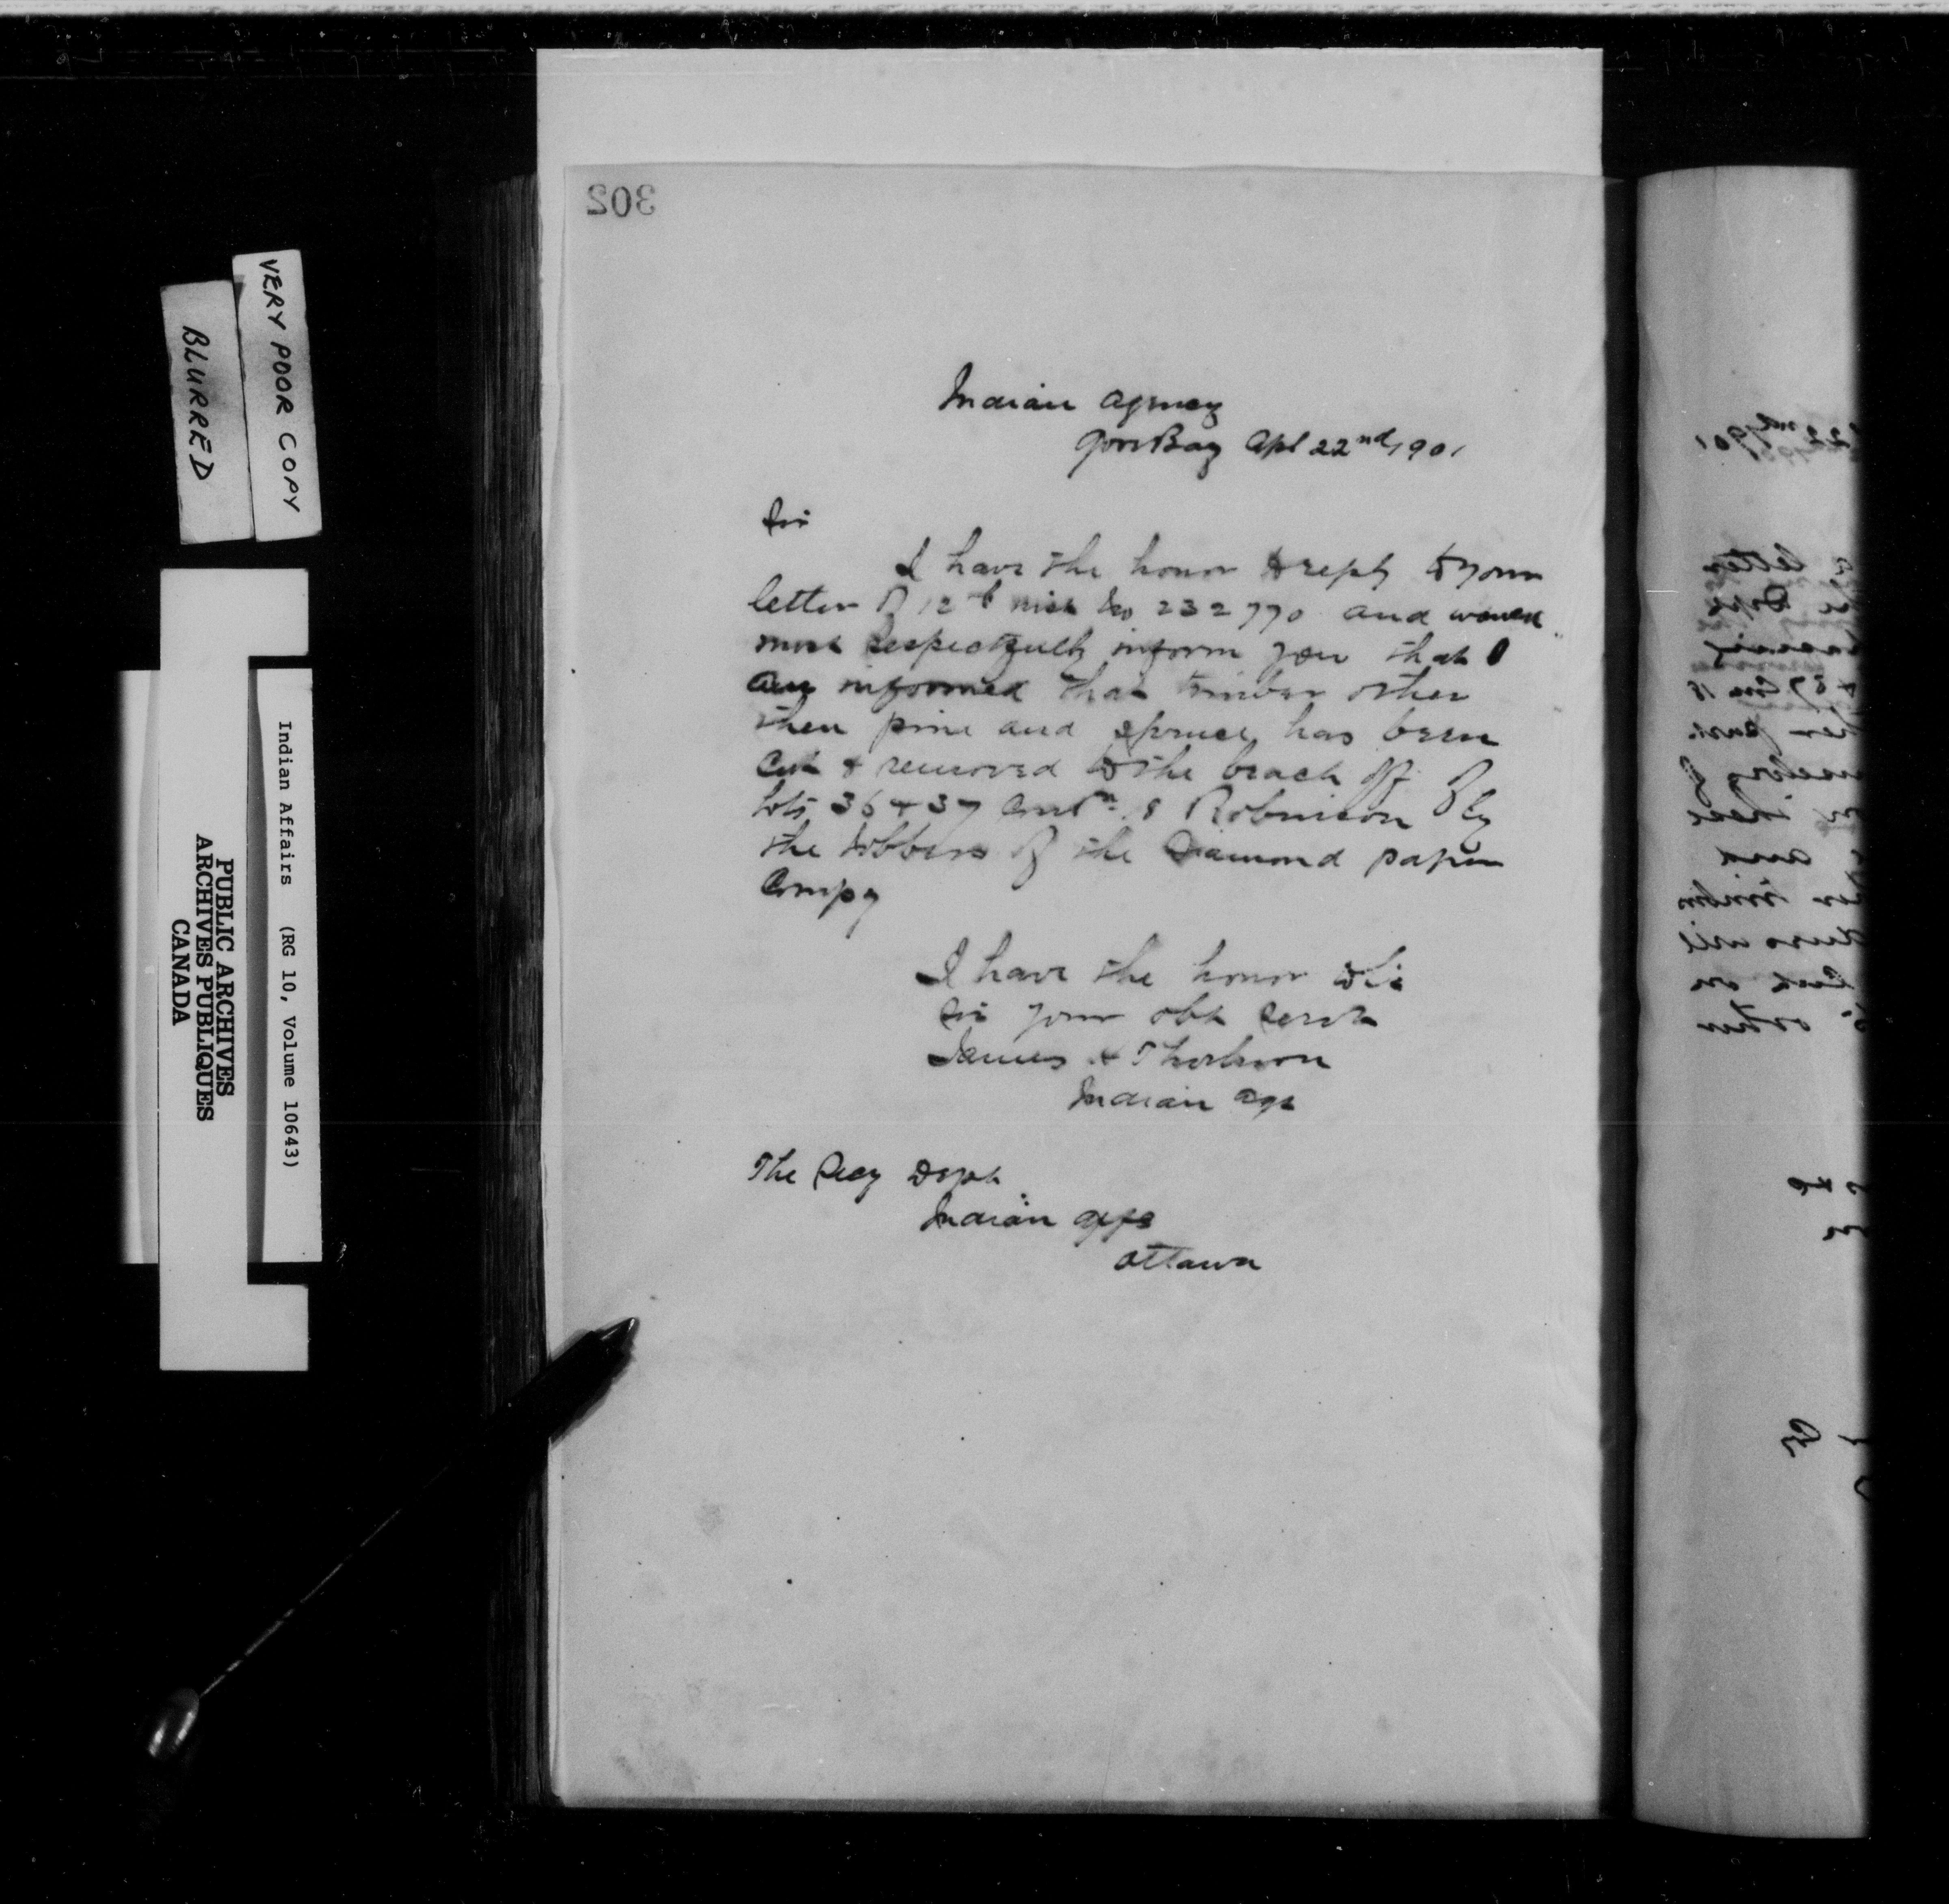 302
Indian Agency
Gore Bay Apl 22nd 1901
Sir
I have the honor to reply to your
letter of 12th inst No 232770 and would
most respectfully inform you that I
am informed that timber other
then pine and spruce has been
cut & removed to the beach off of
lots 36 & 37 Con 18 Robinson by
the jobbers of the Diamond paper
Compy
I have the honor to be
Sir your obt servt
James H Thorburn
Indian Agt
The Secy Dept
Indian Affs
Ottawa
VERY POOR COPY
BLURRED
Indian Affairs (RG 10, Volume 10643)
PUBLIC ARCHIVES
ARCHIVES PUBLIQUES
CANADA
22nd 1901
letter
Dept
other